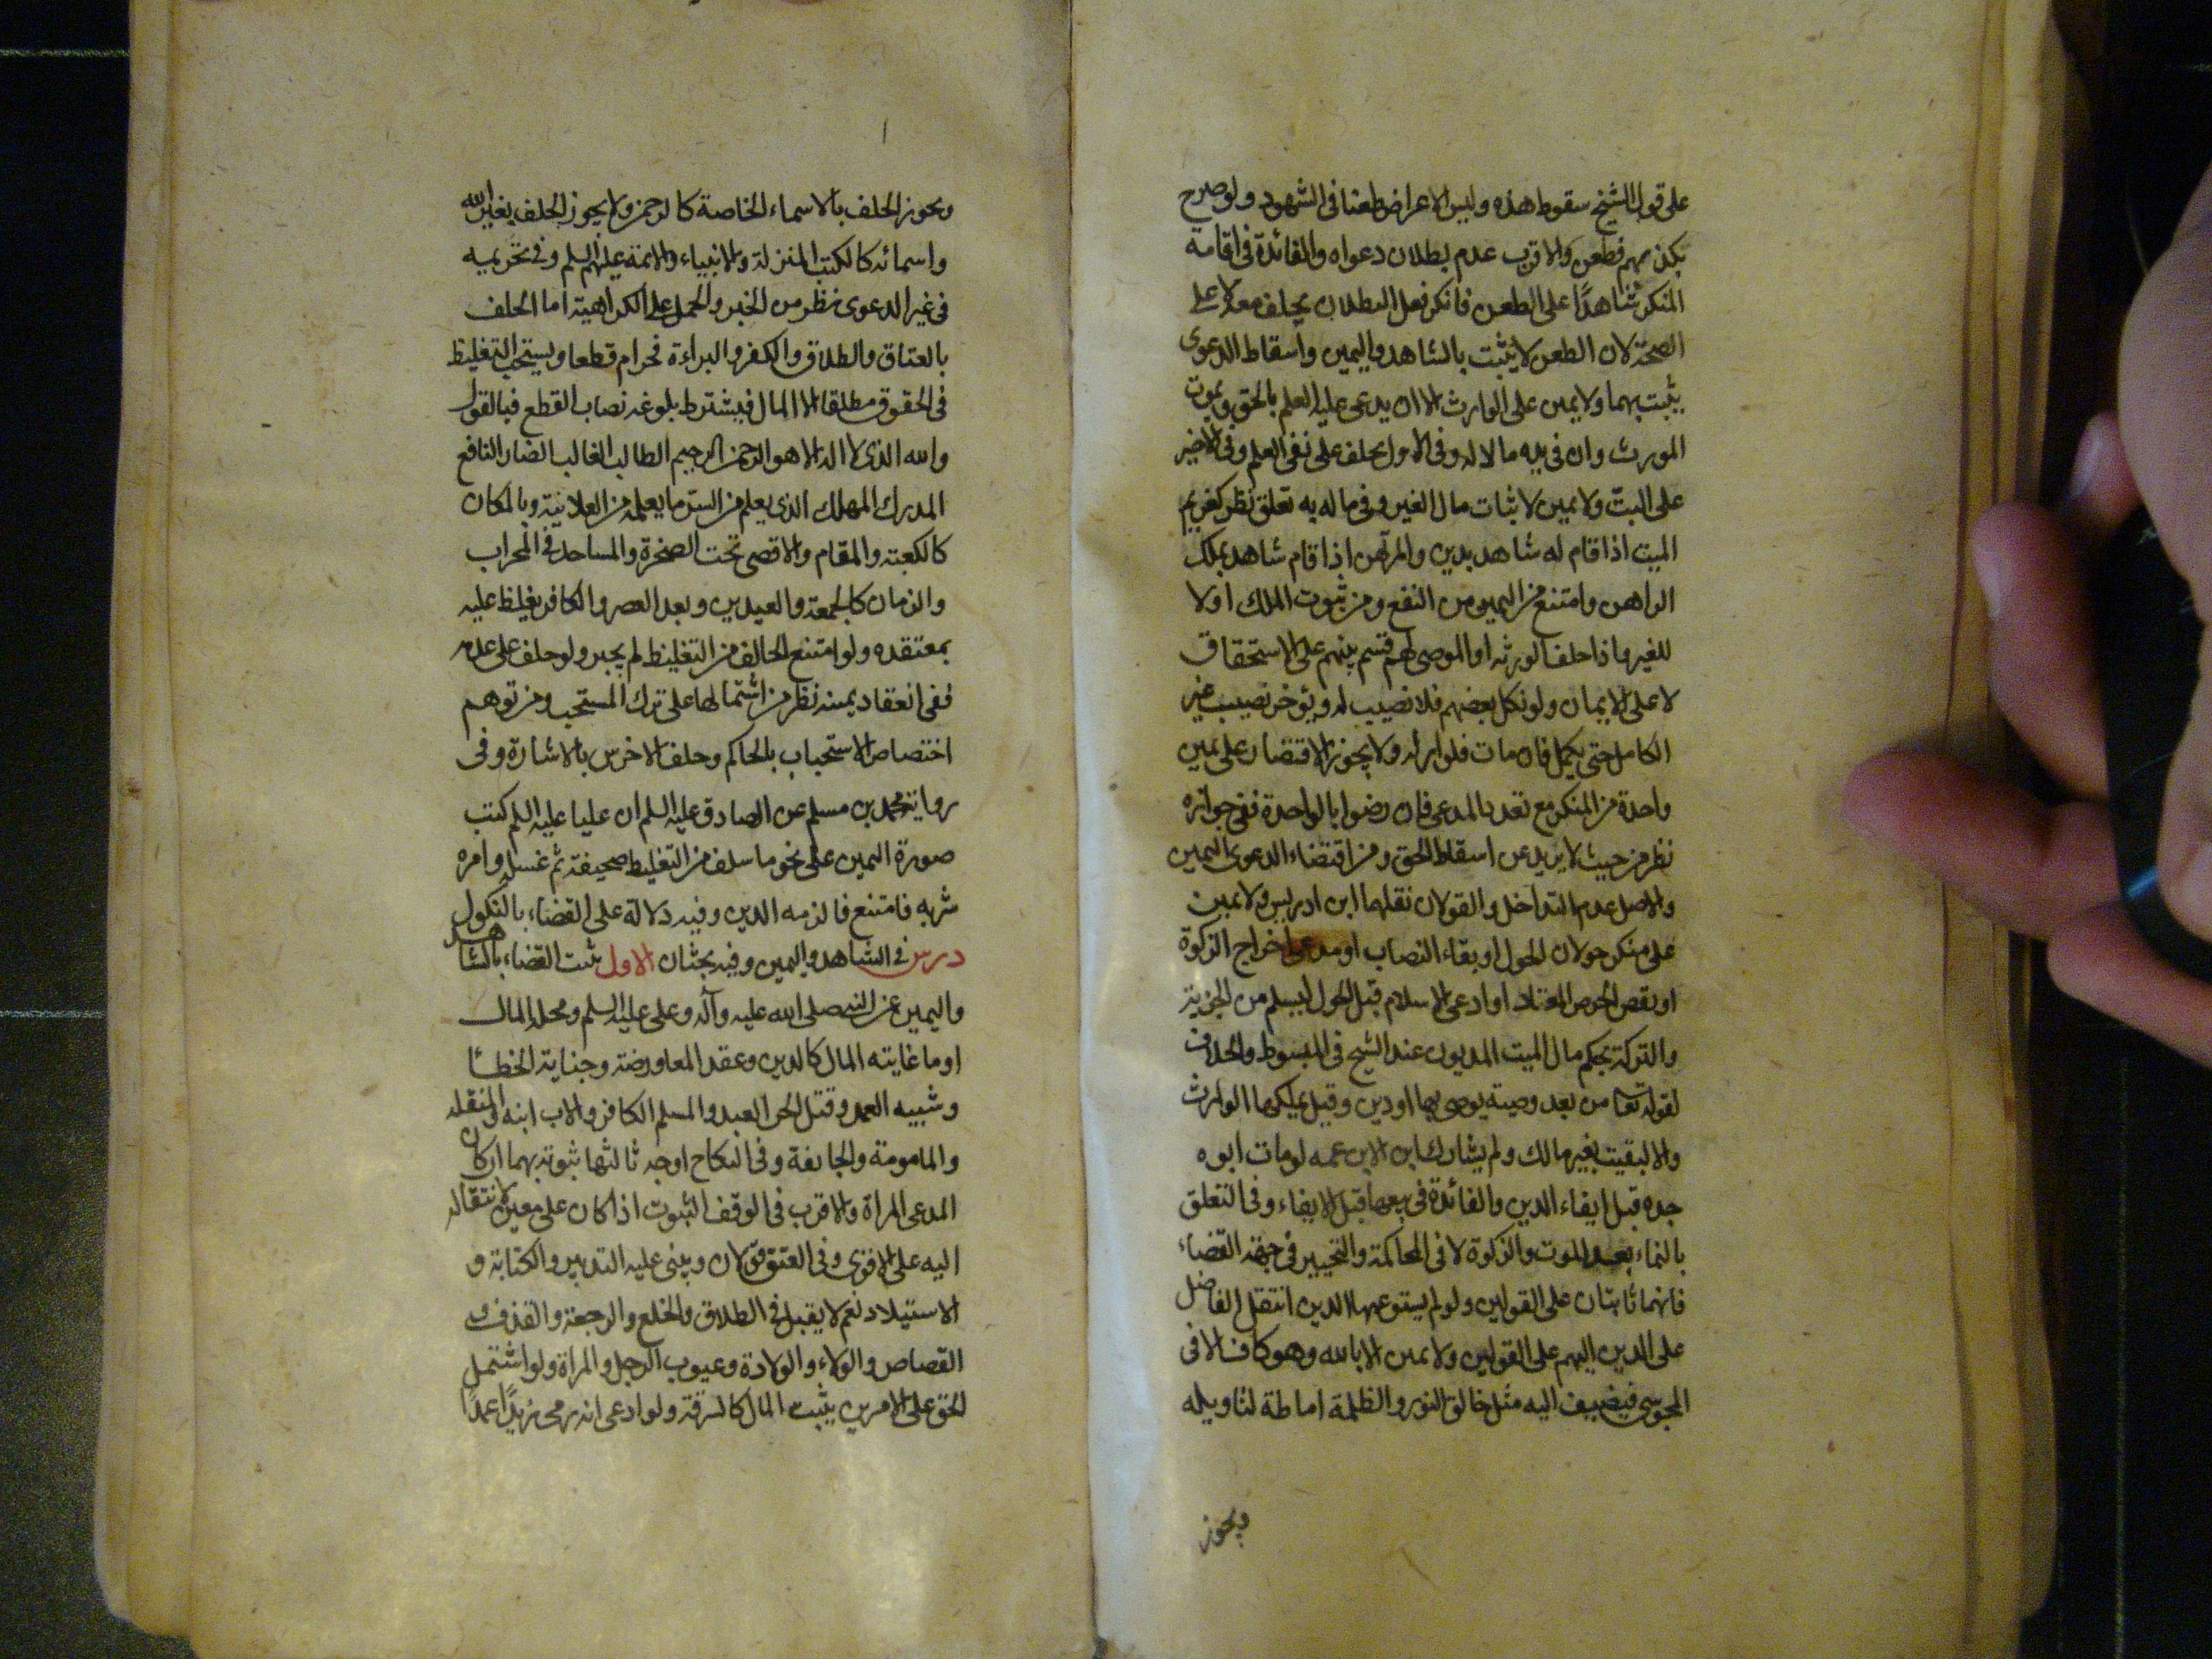 على قول الشيخ سقوط هذه وليس الاعراض طعنا فى الشهود ولو صرح
بكذبهم فطعن والاقرب عدم بطلان دعواه والفائدة فى اقامة
المنكر شاهدًا على الطعن فانكر فعل البطلان يحلف معه لا على
الصحة لان الطعن لا يثبت بالشاهد واليمين واسقاط الدعوى
يثبت بهما ولا يمين على الوارث الا ان يدعى عليه العلم بالحق وبموت
المورث وان فى يده مالا له وفى الاول يحلف على نفى العلم وفى الاخير
على البتّ ولا يمين لاثبات مال الغير وفى ما له به تعلق نظر كغريم
الميت اذا قام له شاهد بدين والمرتهن اذا قام شاهد بملك
الراهن وامتنع من اليمين من النفع ومن ثبوت الملك اولا
للغير واذا حلف الورثه او الموصى لهم قسم بينهم على الاستحقاق
لا على الايمان ولو نكل بعضهم فلا نصيب له ويؤخر نصيب غير
الكامل حتى يكمل فان مات فلوارثه ولا يجوز الاقتصار على يمين
واحدة من المنكر مع تعدد المدعى فان رضوا بالواحدة ففى جوازه
نظر من حيث لا يزيد عن اسقاط الحق ومن اقتضاء الدعوى اليمين
والاصل عدم التداخل والقولان نقلهما ابن ادريس ولا يمين
على منكر حولان الحول او بقاء النصاب او مدعى اخراج الزكوة
او نقص الخرص المعتاد او ادعى الاسلام قبل الحول ليسلم من الجزية
والتركة بحكم مال الميت المديون عند الشيخ فى المبسوط والخلاف
لقوله تعا من بعد وصية يوصى بها او دين وقيل يملكها الوارث
والا لبقيت بغير مالك ولم يشارك ابن الابن عمه لو مات ابوه
جده قبل ايفاء الدين والفائدة فى بيعها قبل الايفاء وفى التعلق
بالنماء بعد الموت والزكوة لا فى المحاكمة والتخيير فى جهة القضاء
فانهما ثابتان على القولين ولو لم يستوعبها الدين انتقل الفاضل
على الدين اليهم على القولين ولا يمين الا بالله وهو كاف الا فى
المجوسى فيضيف اليه مثل خالق النور والظلمة اماطة لتاويله
ويجوز
ويجوز الحلف بالاسماء الخاصة كالرحمن ولا يجوز الحلف بغير الله
واسمائه كالكتب المنزلة والانبياء والائمة عليهم السلم وفى تحريمه
فى غير الدعوى نظر من الخبر والحمل على الكراهية اما الحلف
بالعتاق والطلاق والكفر والبراءة فحرام قطعا ويستحب التغليظ
فى الحقوق مطلقا الا المال فيشترط بلوغه نصاب القطع فبالقول
والله الذى لا اله الا هو الرحمن الرحيم الطالب الغالب الضار النافع
المدرك المهلك الذى يعلم من السر ما يعلمه من العلانية وبالمكان
كالكعبة والمقام والاقصى تحت الصخرة والمساجد فى المحراب
والزمان كالجمعة والعيدين وبعد العصر والكافر يغلظ عليه
بمعتقده ولو امتنع الحالف من التغليظ لم يجبر ولو حلف على عدم
ففى انعقاد يمينه نظر من اشتمالها على ترك المستحب ومن توهم
اختصاص الاستحباب بالحاكم وحلف الاخرس بالاشارة وفى
رواية محمد بن مسلم عن الصادق عليه السلم ان عليا عليه السلم كتب
صورة اليمين على نحو ما سلف من التغليظ صحيفة ثم غسله وامره
شربه فامتنع فالزمه الدين وفيه دلالة على القضاء بالنكول
درس فى الشاهد واليمين وفيه بحثان الاول يثبت القضاء بالشاهد
واليمين عن النبى صلى الله عليه وآله وعلى عليه السلم ومحله المال
او ما غايته المال كالدين وعقد المعاوضة وجناية الخطأ
وشبيه العمد وقتل الحر العبد والمسلم الكافر والاب ابنه والمنقله
والمامومة والجائفة وفى النكاح اوجه ثالثها ثبوته بهما ان كان
المدعى المراة والاقرب فى الوقف الثبوت اذا كان على معين لانتقاله
اليه على الاقوى وفى العتق قولان ويبنى عليه التدبير والكتابة و
الاستيلاد نعم لا يقبل فى الطلاق والخلع والرجعة والقذف و
القصاص والولاء والولادة وعيوب الرجل والمراة ولو اشتمل
الحق على الامرين يثبت المال كالسرقة ولو ادعى انه رمى زيدًا عمدًا